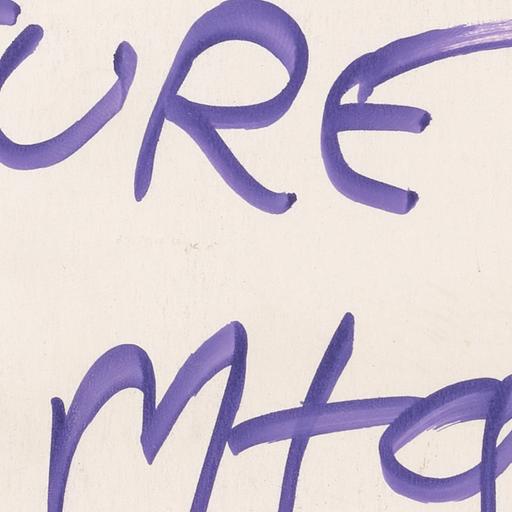 URE
Mta